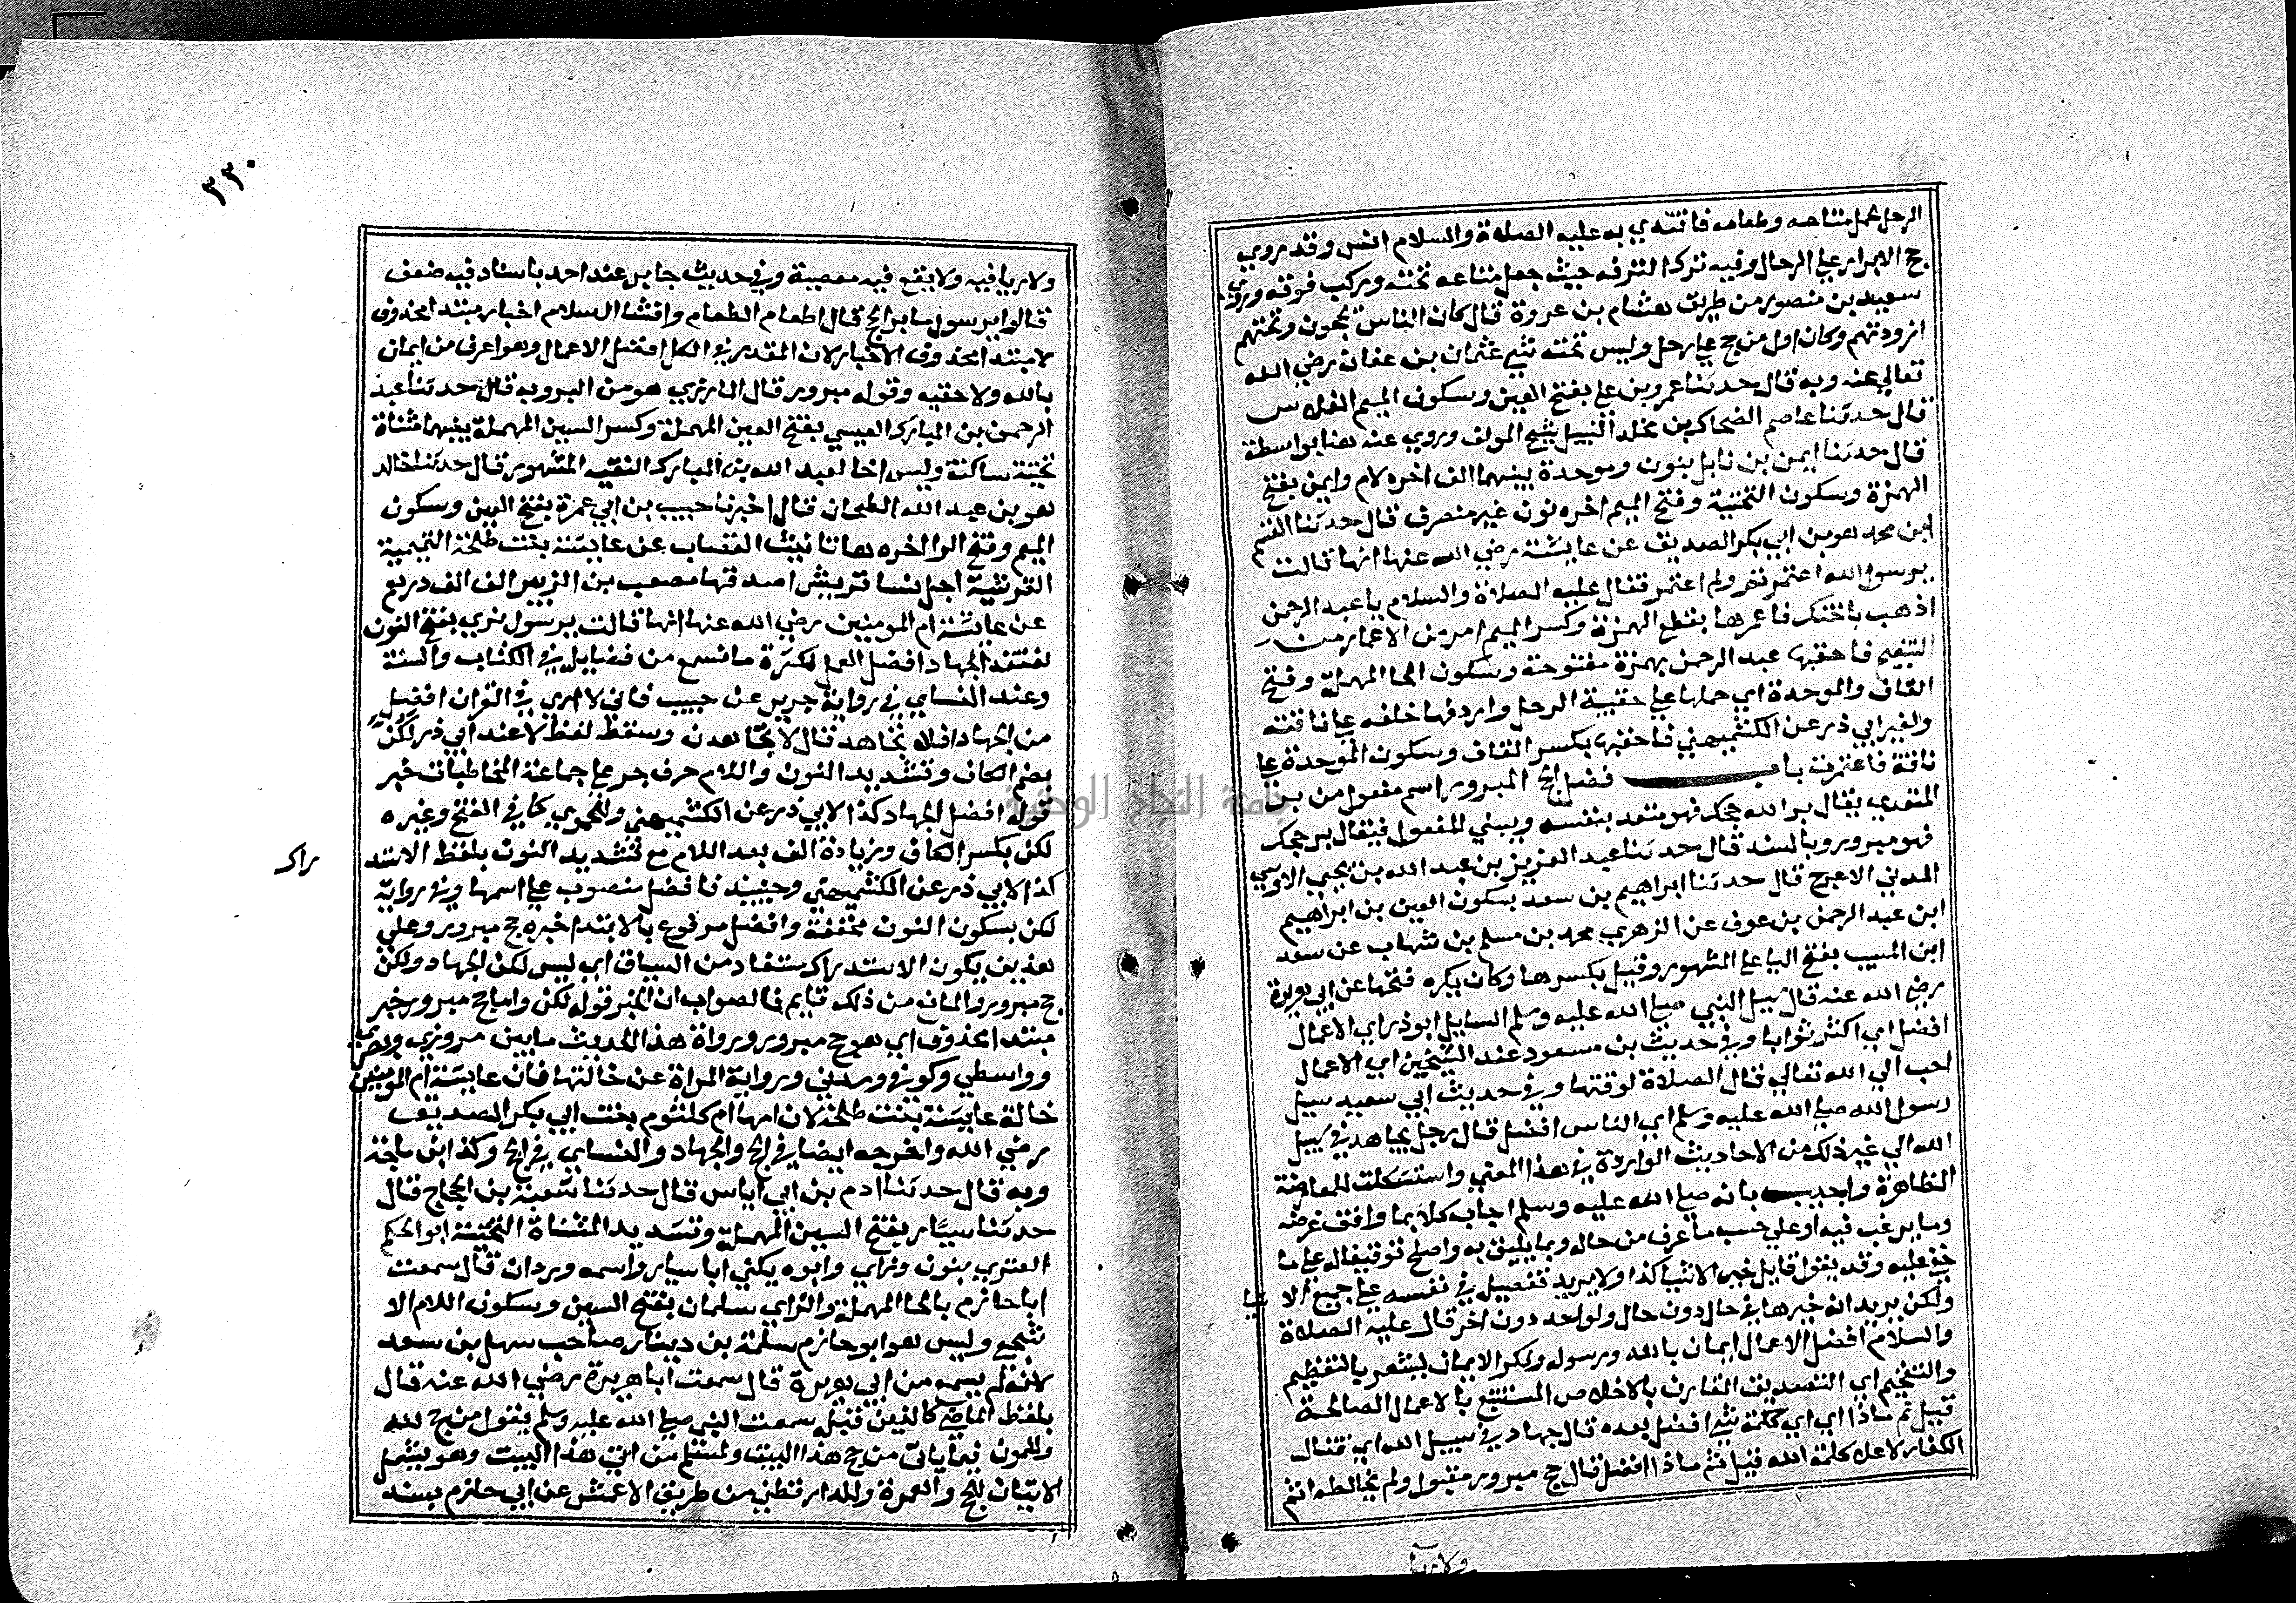 الرحل بحمل متاعه وطعامه فاقتدي به عليه الصلاة والسلام انس وقد روي
حج الابرار علي الرحال وفيه ترك الترفه حيث جعل متاعه تحته وركب فوقه وروي
سعيد بن منصور من طريق هشام بن عروة قال كان الناس يحجون وتحتهم
ازودتهم وكان اول من حج علي رحل وليس تحته شي عثمان بن عفان رضي الله
تعالي عنه وبه قال حدثنا عمرو بن علي بفتح العين وسكون الميم الفلاس
قال حدثنا عاصم الضحاك بن مخلد النبيل شيخ المولف وروي عنه هنا بواسطة
قال حدثنا ايمن بن نابل بنون وموحدة بينهما الف اخره لام وايمن بفتح
الهمزة وسكون التحتية وفتح الميم اخره نون غير منصرف قال حدثنا القسم
ابن محمد هو بن ابي بكر الصديق عن عايشة رضي الله عنها انها قالت
يرسول الله اعتمرتم ولم اعتمر فقال عليه الصلاة والسلام يا عبد الرحمن
اذهب باختك فاعمرها بقطع الهمزة وكسر الميم امر من الاعمار من
التنعيم فاحقبها عبد الرحمن بهمزة مفتوحة وسكون الحا المهملة وفتح
القاف والموحدة اي حملها علي حقيبة الرحل واردفها خلفه علي ناقته
ولغير ابي ذر عن الكشميهني فاحقبها بكسر القاف وسكون الموحدة علي
ناقة فاعتمرت باب فضل الحج المبرور اسم مفعول من بر
المتعدي يقال بر الله حجك فهو متعد بنفسه ويبني للمفعول فيقال بر حجك
فهو مبرور وبالسند قال حدثنا عبد العزيز بن عبد الله بن يحيي الاويسي
المدني الاعرج قال حدثنا ابراهيم بن سعد بسكون العين بن ابراهيم
ابن عبد الرحمن بن عوف عن الزهري محمد بن مسلم بن شهاب عن سعد
ابن المسيب بفتح اليا علي المشهور وقيل بكسرها وكان يكره فتحها عن ابي هريرة
رضي الله عنه قال سيل النبي صلي الله عليه وسلم السايل ابو ذر اي الاعمال
افضل اي اكثر ثوابا وفي حديث بن مسعود عند الشيخين اي الاعمال
احب الي الله تعالي قال الصلاة لوقتها وفي حديث ابي سعيد سيل
رسول الله صلي الله عليه وسلم اي الناس افضل قال رجل يجاهد في سبيل
الله الي غير ذلك من الاحاديث الواردة في هذا المعني واستشكلت للمعارضة
الظاهرة واجيب بانه صلي الله عليه وسلم اجاب كلا بما وافق غرضه
وما يرغب فيه او علي حسب ما عرف من حاله وبما يليق به واصلح توقيفا له علي ما
خفي عليه وقد يقول قايل خير الاشيا كذا ولا يريد تفضيل في نفسه علي جميع الا شيا
ولكن يريد انه خيرها في حال دون حال ولواحد دون اخر قال عليه الصلاة
والسلام افضل الاعمال ايمان بالله ورسوله ونكر الايمان ليشعر بالتعظيم
والتفخيم اي التصديق المقارن بالاخلاص المستتبع بالاعمال الصالحة
قيل ثم ماذا اي اي شي افضل بعده قال جهاد في سبيل الله اي قتال
الكفار لاعلا كلمة الله قيل ثم ماذا افضل قال حج مبرور مقبول ولم يخالطه اثم
ولا ريا
٣٣٠
ولا ريا فيه ولا يقع فيه معصية وفي حديث جابر عند احمد باسناد فيه ضعف
قالوا يرسول ما بر الحج قال اطعام الطعام وافشا السلام اخبار مبتدا محذوف
لا مبتدا محذوف الاخبار لان المقدر في الكل افضل الاعمال وهو اعرف من ايمان
بالله ولاحقيه وقوله مبرور قال المازري هو من البر وبه قال حدثنا عبد
الرحمن بن المبارك العيسي بفتح العين المهملة وكسر السين المهملة بينهما مثناة
تحتية ساكنة وليس اخا لعبد الله بن المبارك الفقيه المشهور قال حدثنا خالد
هو بن عبد الله الطحان قال اخبرنا حبيب بن ابي عمرة بفتح العين وسكون
الميم وفتح الرا اخره ها تانيث القصاب عن عايشة بنت طلحة التيمية
القرشية اجمل نسا قريش اصدقها مصعب بن الزبير الف الف درهم
عن عايشة ام المومنين رضي الله عنها انها قالت يرسول نري بفتح النون
نعتقد الجهاد افضل العمل لكثرة ما نسمع من فضايله في الكتاب والسنة
وعند النساي في رواية جرير عن حبيب فاني لا اري في القران افضل
من الجهاد افلا نجاهد قال لا تجاهدن وسقط لفظ لا عند ابي ذر لكن
بضم الكاف وتشديد النون واللام حرف جر علي جماعة المخاطبات خبر
قوله افضل الجهاد كذا لابي ذر عن الكشميهني والحموي كما في الفتح وغيره
لكن بكسر الكاف وزيادة الف بعد اللام مع تشديد النون بلفظ الاستد راك
كذا لابي ذر عن الكشميهني وحينيذ فافضل منصوب علي اسمها وفي رواية
لكن بسكون النون مخففة وافضل مرفوع بالابتدا خبره حج مبرور وعلي
هذين يكون الاستدراك مستفاد من السياق اي ليس لكن الجهاد ولكن
حج مبرور والمانع من ذلك قايم فالصواب ان الخبر قوله لكن واما حج مبرور خبر
مبتدا محذوف اي هو حج مبرور ورواة هذا الحديث ما بين مروزي وبصري
وواسطي وكوفي ومدني ورواية المراة عن خالتها فان عايشة ام المومنين
خالة عايشة بنت طلحة لان امها ام كلثوم بنت ابي بكر الصديق
رضي الله واخرجه ايضا في الحج والجهاد والنساي في الحج وكذا ابن ماجة
وبه قال حدثنا ادم بن ابي اياس قال حدثنا شعبة بن الحجاج قال
حدثنا سيار بفتح السين المهملة وتشديد المثناة التحتية ابو الحكم
العنزي بنون وزاي وابوه يكني ابا سيار واسمه وردان قال سمعت
ابا حازم بالحا المهملة والزاي سلمان بفتح السين وسكون اللام الا
شجعي وليس هو ابو حازم سلمة بن دينار صاحب سهل بن سعد
لانه لم يسمع من ابي هريرة قال سمعت ابا هريرة رضي الله عنه قال
بلفظ الماضي كالذين قبل سمعت النبي صلي الله عليه وسلم يقول من حج لله
وللمون فيما ياتي من حج هذا البيت ولمسلم من اتي هذا البيت وهو يشمل
الاتيان للحج والعمرة وللدارقطني من طريق الاعمش عن ابي حازم بسند
جامعة النجاح الوطنية